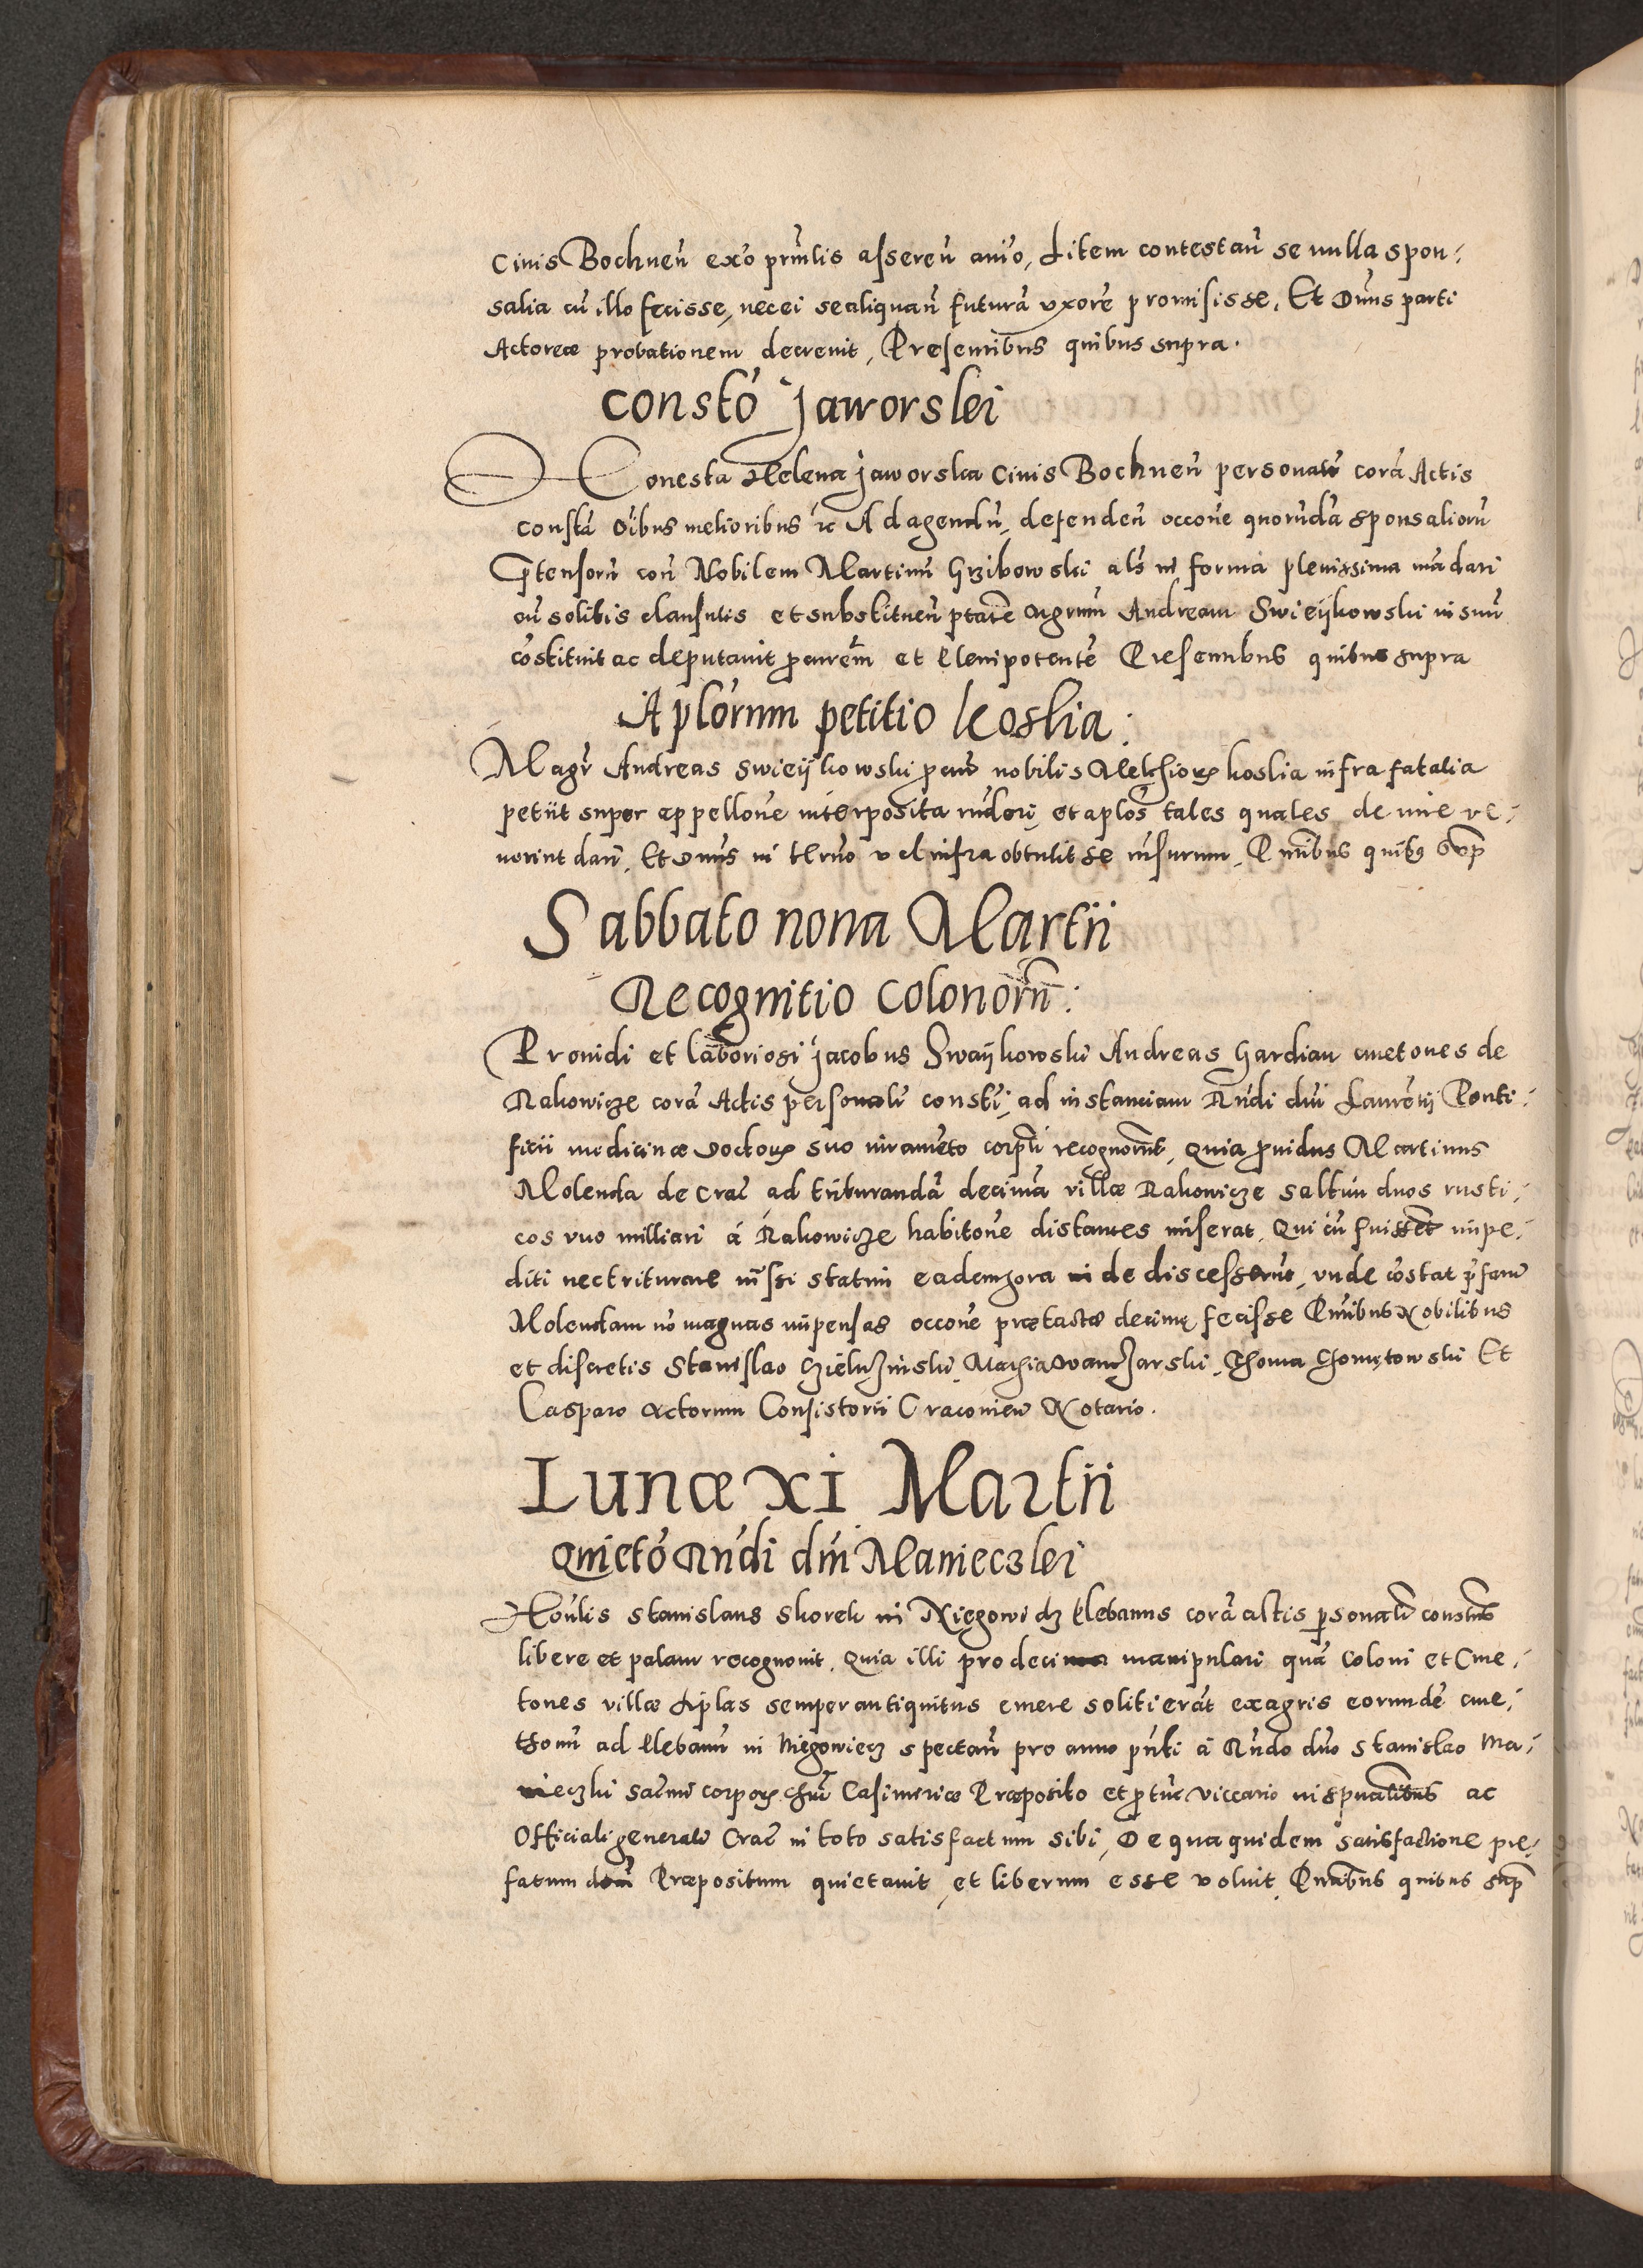 Civis Bochneñ exõ prinlis assereñ anõ, Litem contestañ se nulla spon-
salia cũ illo fecisse, nec ei se aliquam̃ futurã uxorẽ promisisse. Et Dñus parti
Actoreæ probationem decrevit, Presentibus quibus supra.
Constõ Jaworskei
Honesta Helena Jaworska Civis Bochneñ personalr̃ corã Actis
constã oĩbus melioribus ꝛc Ad agendũ, defendeñ occõne quorundã sponsaliorũ
p̃tensorũ coñ Nobilem Martinũ Grzibowski als̃ in forma plenissima mãdati
cũ solitis clausulis et substitueñ ptatẽ Magrum̃ Andream Swieijkowski in suũ
cõstituit ac deputavit procurem̃ et Plenipotentẽ Presentibus quibus supra
Aplõrum petitio Koslia:
Magr̃ Andreas Swieijkowski procur̃ nobilis Melchioris Koslia infra fatalia
petiit super appellõne interposita rñderi, et aplõs tales quales de iure ve-
nerint dari. Et Dñus in termo vel infra obtulit se rñsurum, Pñtibus quibus supr
Sabbato nona Martii
Recognitio Colonorũ:
Providi et laboriosi Jacobus Swaijkowski Andreas Gardian cmetones de
Rakowicze corã Actis personalr̃ constĩ, ad instantiam Rñdi dñi Laurẽtij Ponti-
ficii medicinæ Doctoris suo iuramẽto corpli recognorũt, quia providus Martinus
Molenda de Crac̃ ad triturandã decimã villæ Rakowicze saltim duos rusti-
cos uno milliari á Rakowicze habitõne distantes miserat. Qui cũ fuissent impe-
diti nec triturare missi statim eadem hora inde discesserũt, unde cõstat p̃fatũ
Molendam nõ magnas impensas occõne prætactæ decimę fecisse Pñtibus Nobilibus
et discretis Stanislao Mathia Thoma Chomętowski Et
Casparo Actorum Consistorii Cracovieñ Notario.
Lunæ XI Martii
Quietõ Rñdi dñi Manieczkei
Hoñlis Stanislaus Skorek in Niegowicz Plebanus corã actis personalr̃ constitus
libere et palam recognovit. quia illi pro decima manipulari quã Coloni et Cme-
tones villæ Liplas semper antiquitus emere soliti erãt ex agris eorumdẽ cme-
thonũ ad Plebanũ in Niegowiecz spectañ pro anno pñti á Rñdo dño Stanislao Ma-
nieczki Sacmi corporis Chri Casimiriæ Præposito et p tũc viccario in spualibus ac
Officiali generali Crac̃ in toto satisfactum sibi, De qua quidem satisfactione pre-
fatum dom̃ Præpositum quietavit, et liberum esse voluit, Pñtibus quibus supr